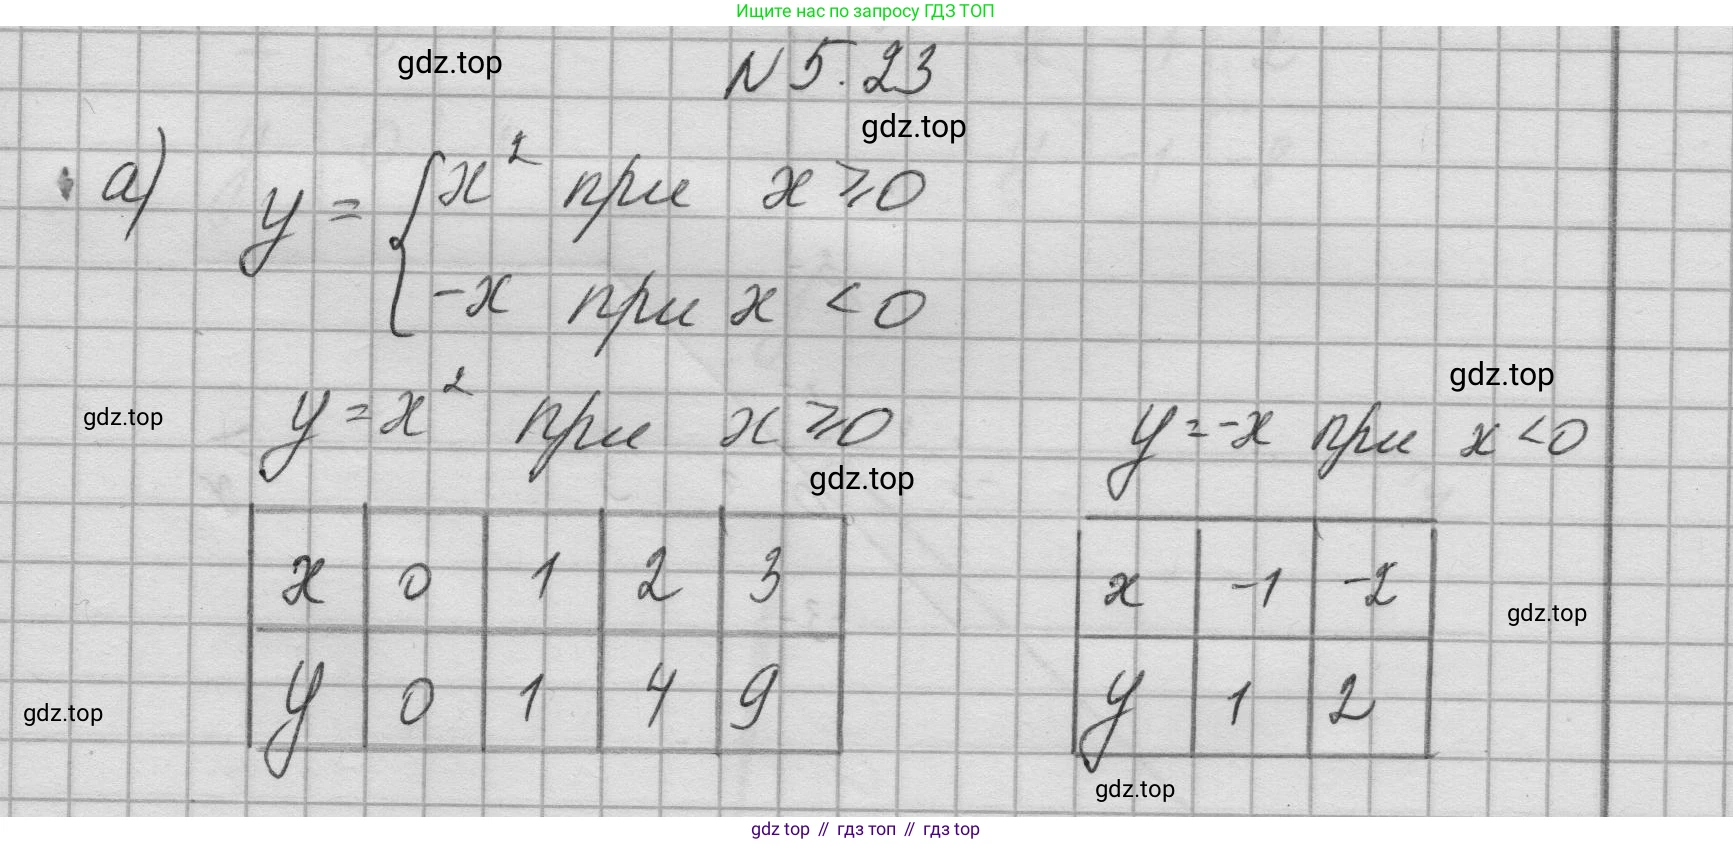 Ищите нас по запросу ГДЗ ТОП
gdz.top
N 5.23
gdz.top
а) y = { x² при x ⩾ 0
-x при x < 0
gdz.top
y = x² при x ⩾ 0
y = -x при x < 0
gdz.top
gdz.top
x 0 1 2 3
y 0 1 4 9
x -1 -2
y 1 2
gdz.top
gdz.top
gdz.top
gdz top // гдз топ // гдз top